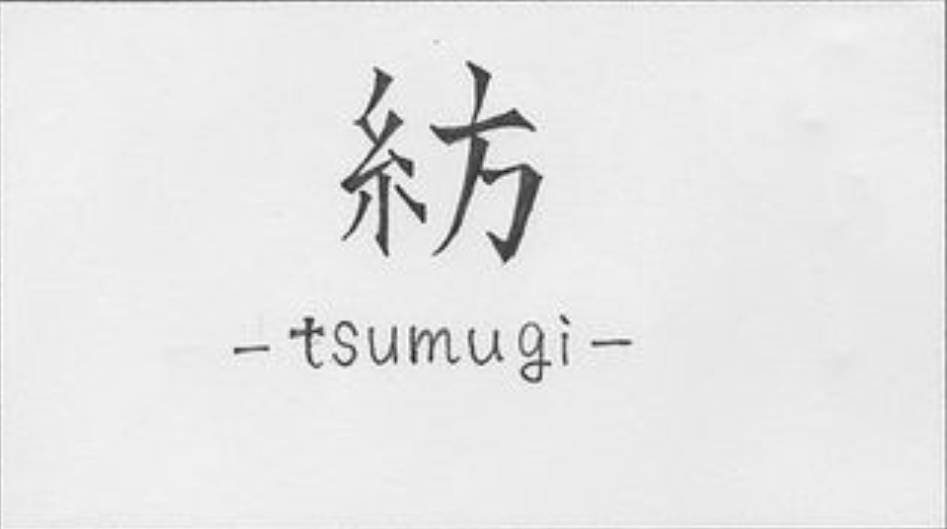 紡
-tsumugi-